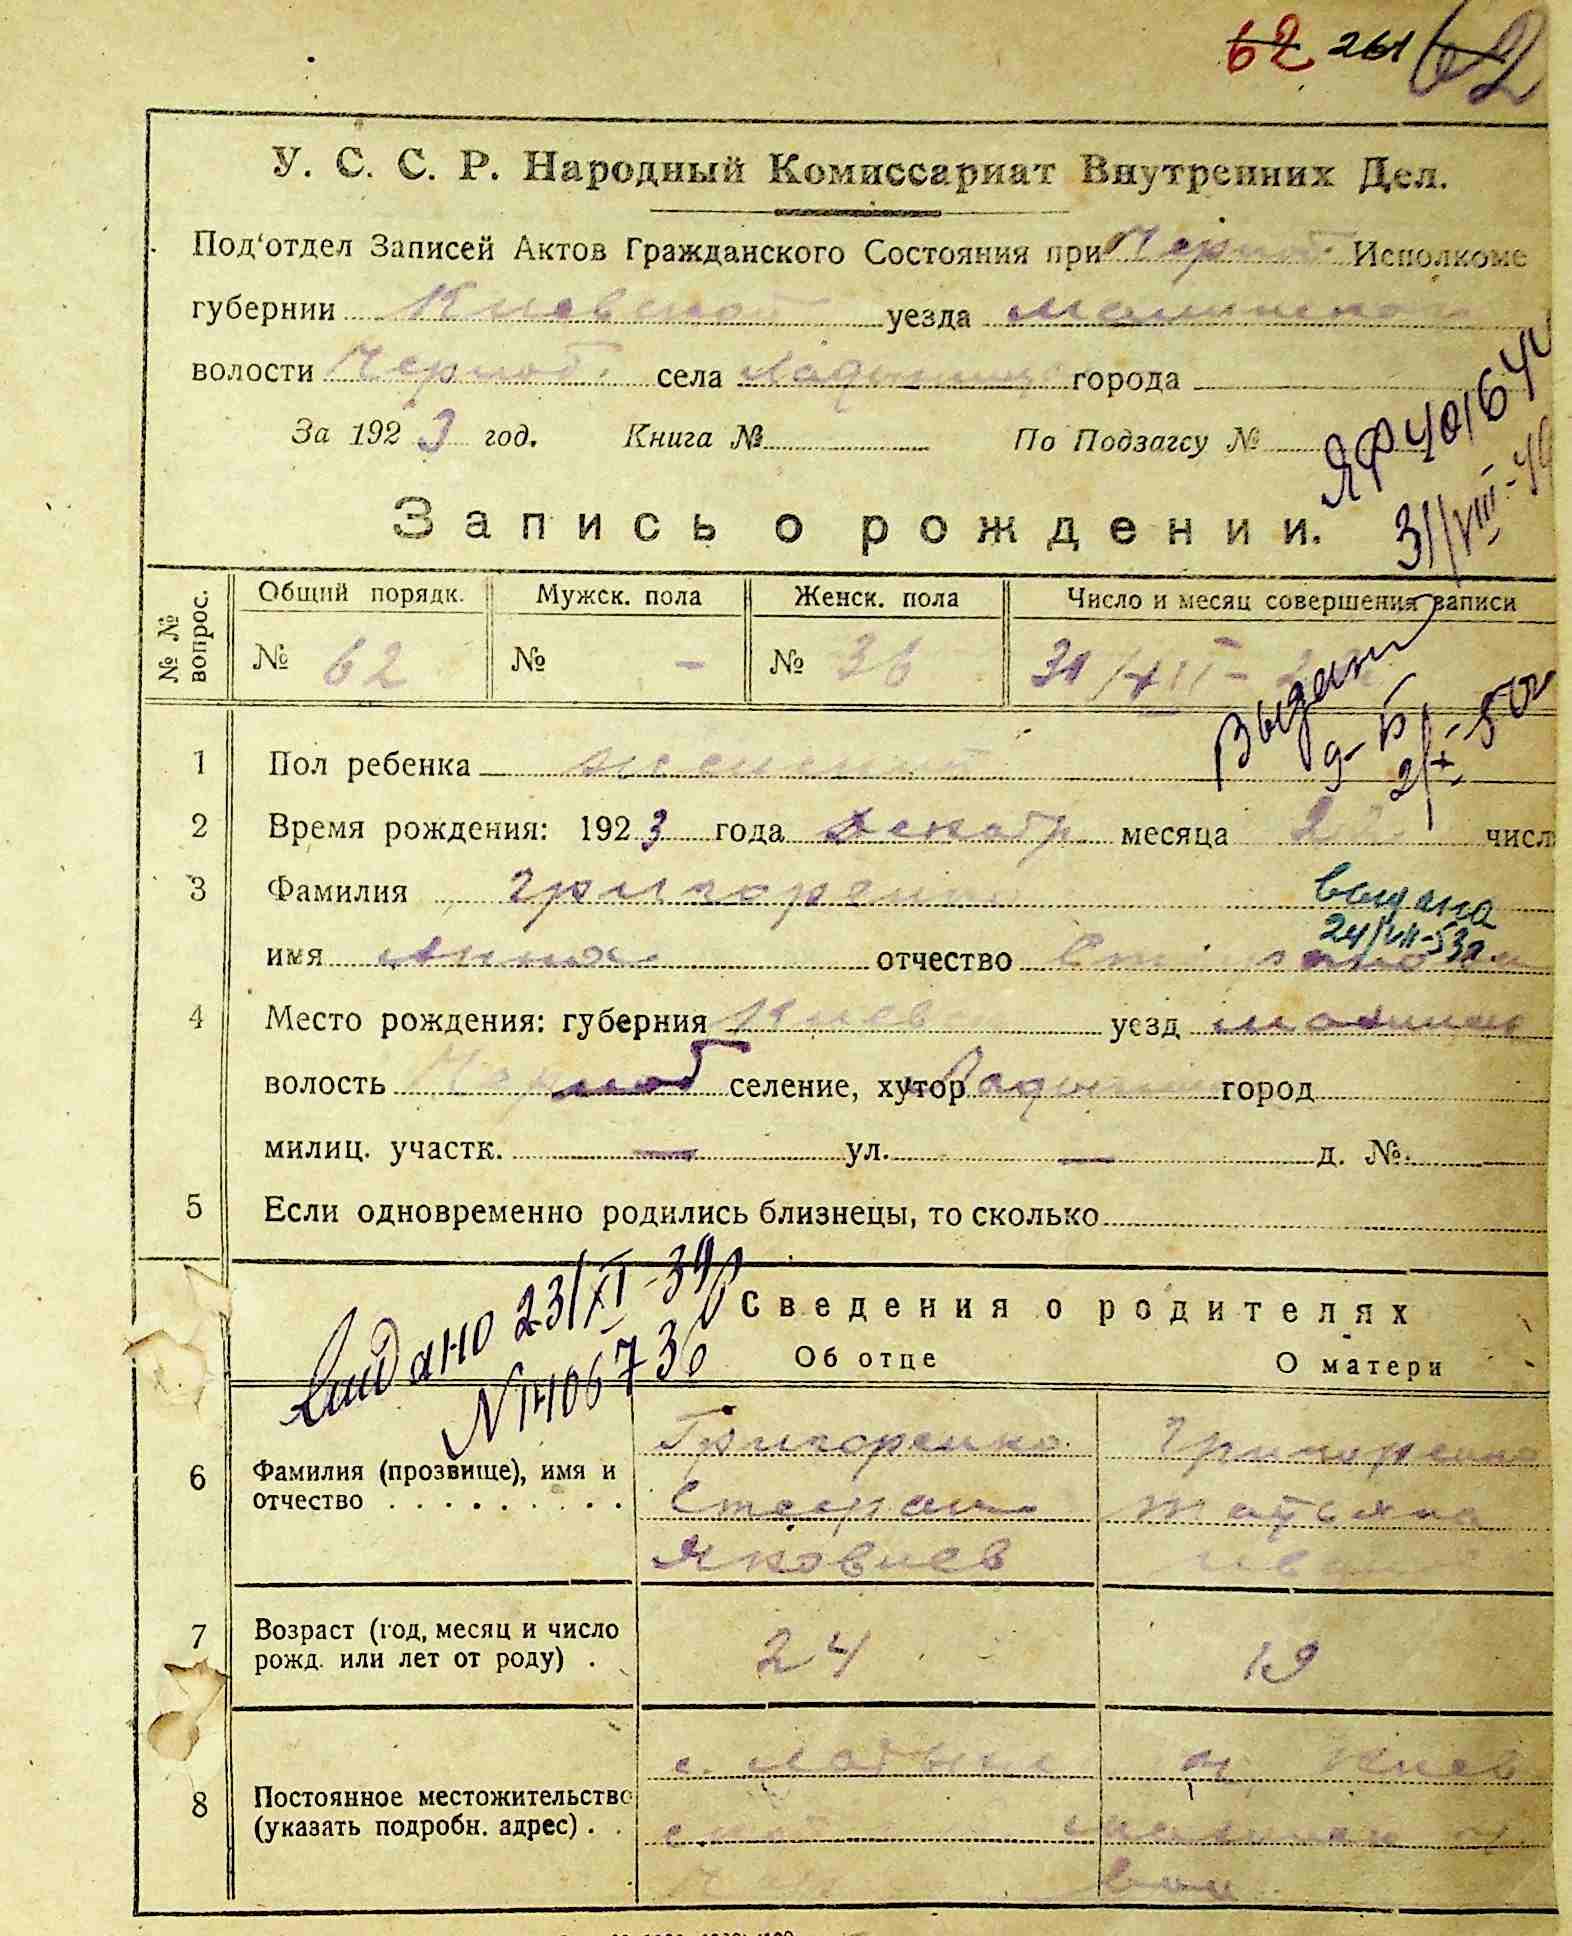 62 261 62
У. С. С. Р. Народный Комиссариат Внутренних Дел.
Под'отдел Записей Актов Гражданского Состояния при Черноб. Исполкоме
губернии Киевской уезда
волости Черноб. села города
За 1923 год. Книга № По Подзагсу №
31/VIII-49
Запись о рождении.
№ № вопрос.
Общий порядк. Мужск. пола Женск. пола Число и месяц совершения записи
№ 62 № - № 36 31/XII-
1 Пол ребенка женский
2 Время рождения: 1923 года Декабр месяца числ
3 Фамилия Григоренко
выдана
имя Анна отчество
4 Место рождения: губерния Киев уезд
волость Черноб селение, хутор город
милиц. участк. — ул. — д. №
5 Если одновременно родились близнецы, то сколько
Видано 23/XI-39р
Сведения о родителях
Об отце О матери
6 Фамилия (прозвище), имя и отчество
Григоренко Григоренко
Стефан Татьяна
Яковлев Иван
7 Возраст (год, месяц и число рожд. или лет от роду) . 24 19
8 Постоянное местожительство (указать подробн. адрес) . .